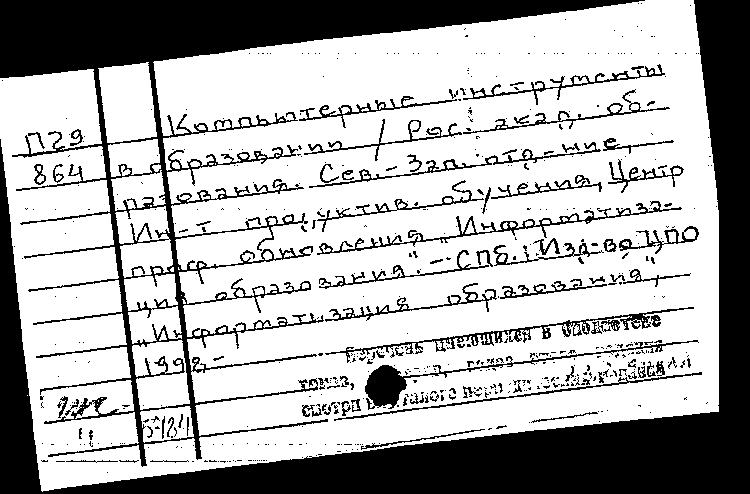 П29
864
Компьютерные инструменты
в образовании / Рос. акад. об-
разования. Сев.-Зап. отд-ние,
Ин-т продуктив. обучения, Центр
проф. обновления "Информатиза-
ция образования". - СПб.: Изд-во ЦПО
"Информатизация образования",
1998,-
Перечень имеющихся в библиотеке
томов,
смотри